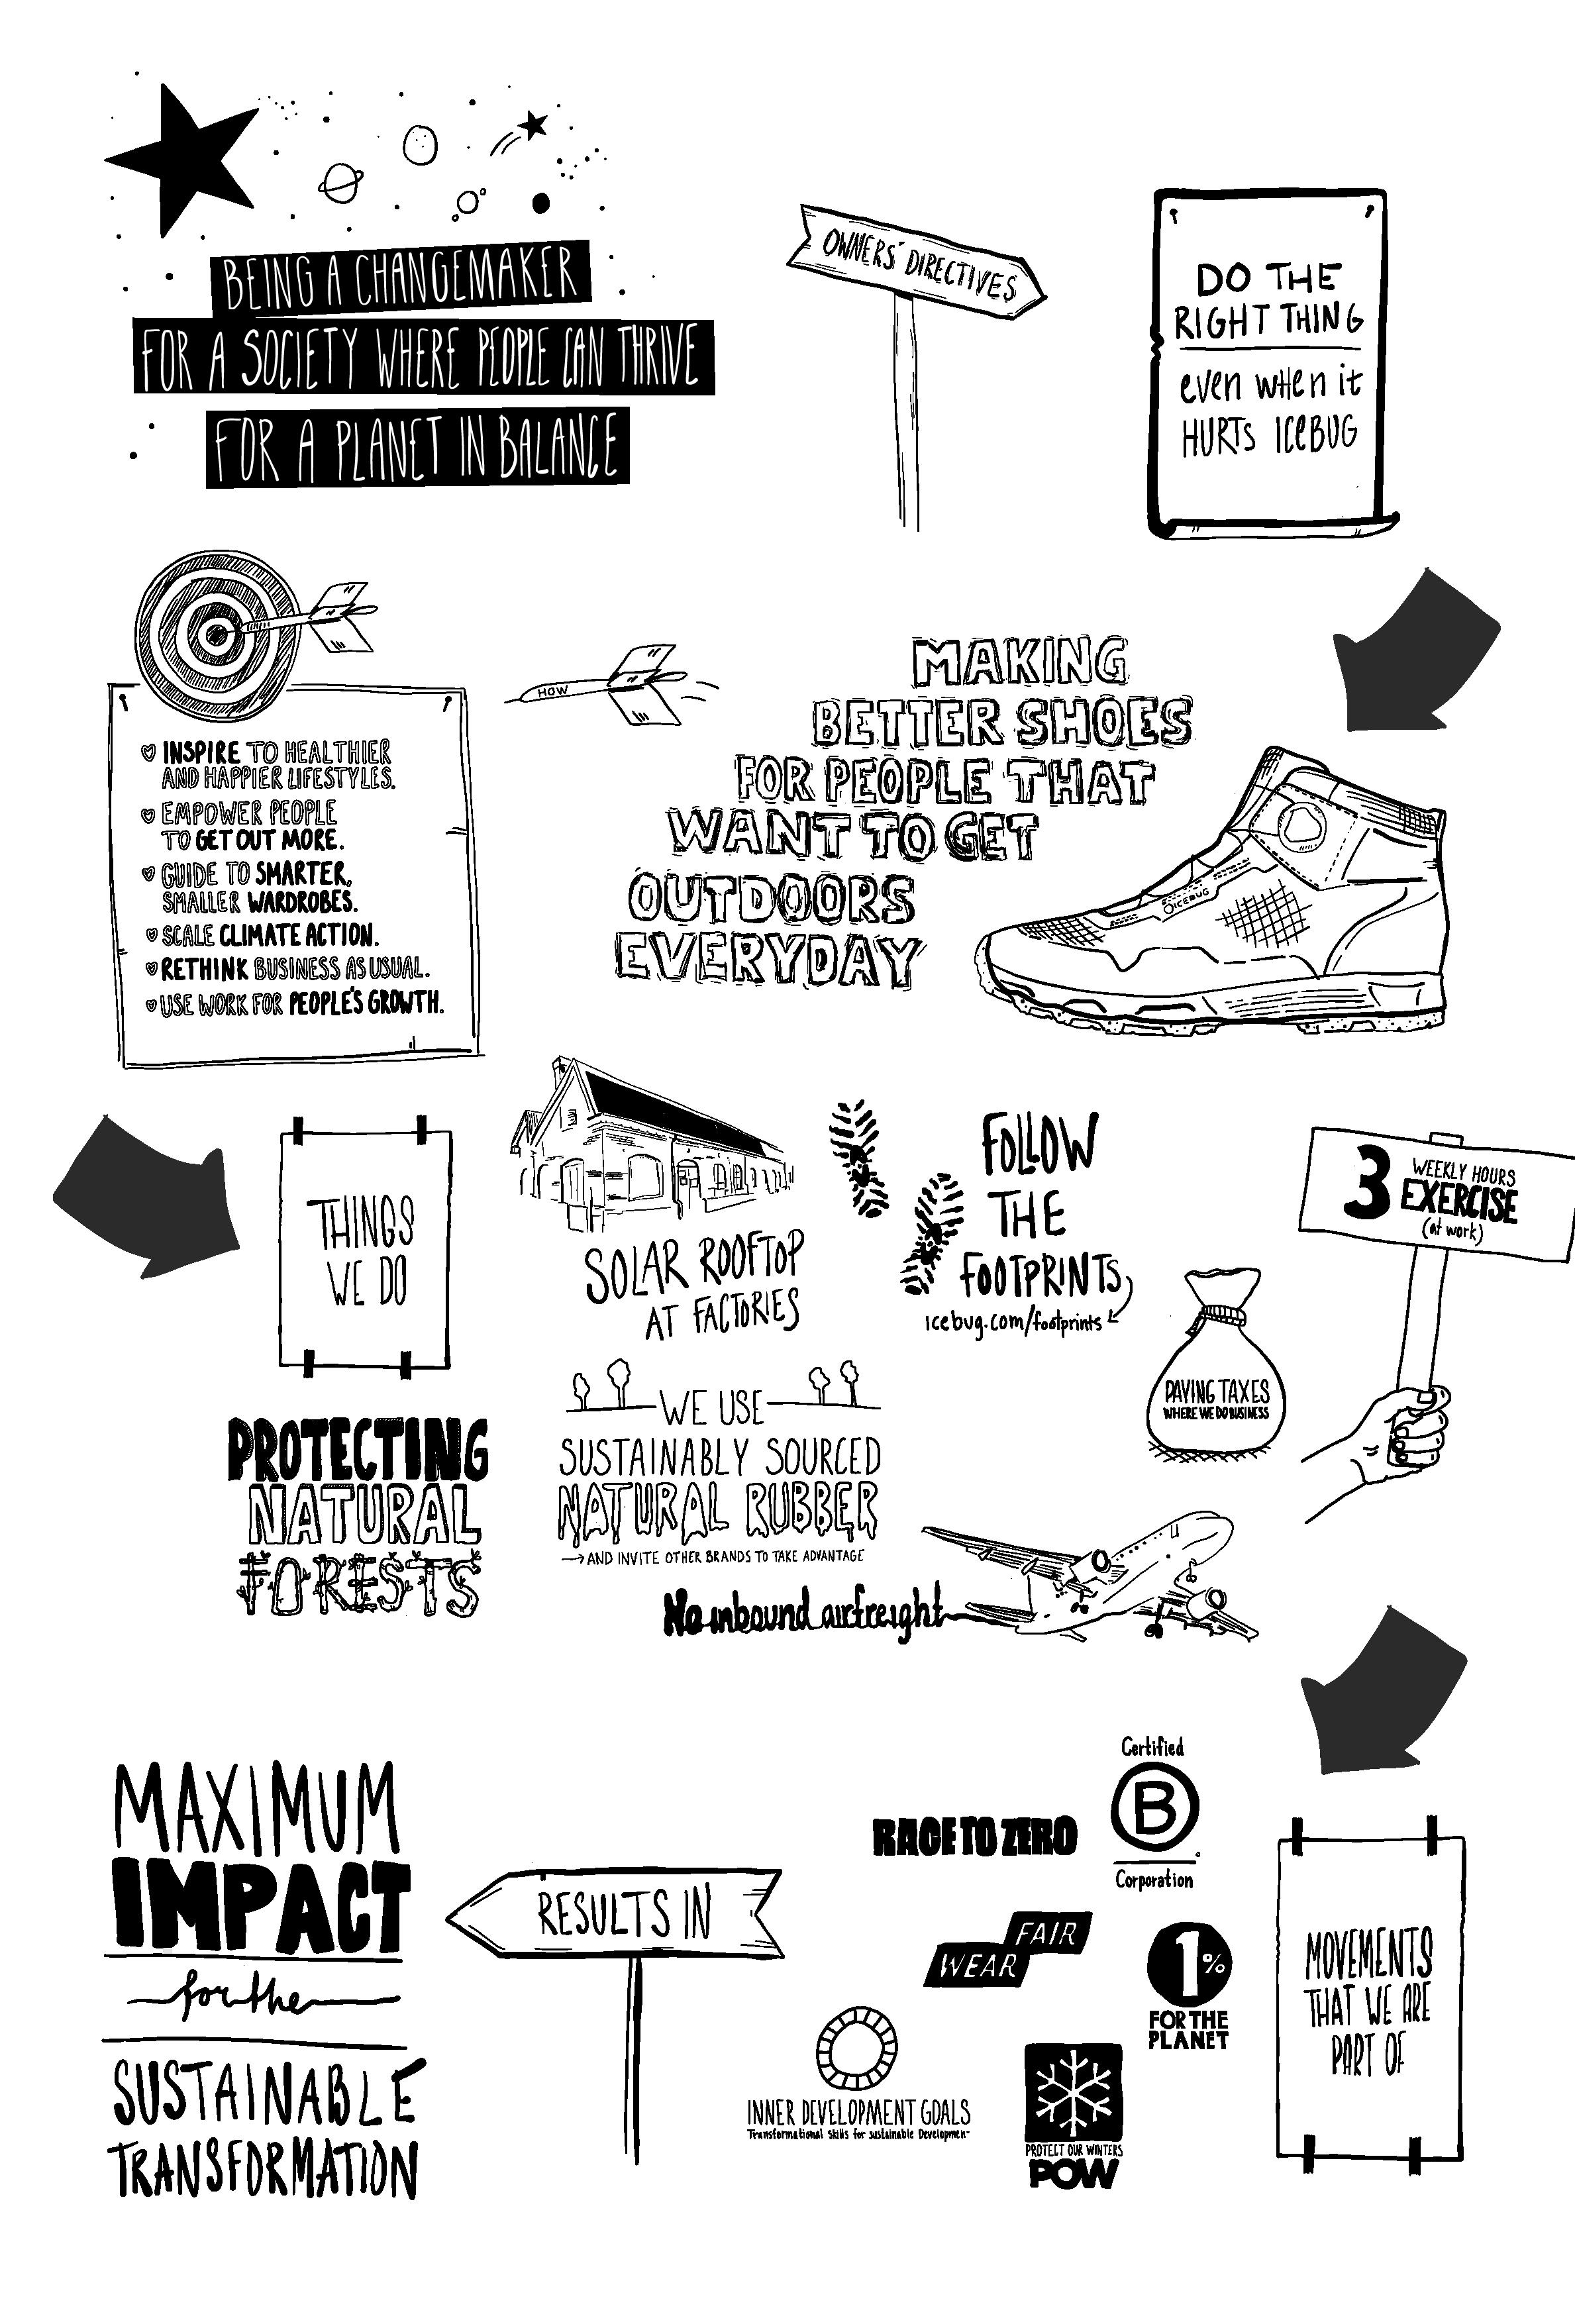 BEING A CHANGEMAKER
FOR A SOCIETY WHERE PEOPLE CAN THRIVE
FOR A PLANET IN BALANCE
OWNERS' DIRECTIVES
DO THE
RIGHT THING
even wHen it
HURTs IceBUG
INSPIRE TO HEALTHIER
AND HAPPIER LIFESTYLES.
EMPOWER PEOPLE
TO GET OUT MORE.
GUIDE TO SMARTER,
SMALLER WARDROBES.
SCALE CLIMATE ACTION.
RETHINK BUSINESS AS USUAL.
USE WORK FOR PEOPLE'S GROWTH.
HOW
MAKING
BETTER SHOES
FOR PEOPLE THAT
WANT TO GET
OUTDOORS
EVERYDAY
ICEBUG
THINGS
WE DO
SOLAR ROOFTOP
AT FACTORIES
FOLLOW
THE
FOOTPRINTS
icebug.com/footprints
3 WEEKLY HOURS
EXERCISE
(at work)
PAYING TAXES
WHERE WE DO BUSINESS
PROTECTING
NATURAL
FORESTS
WE USE
SUSTAINABLY SOURCED
NATURAL RUBBER
→AND INVITE OTHER BRANDS TO TAKE ADVANTAGE
No inbound airfreight
MOVEMENTS
THAT WE ARE
PART OF
Certified
B
Corporation
RACE TO ZERO
FAIR
WEAR
1%
FOR THE
PLANET
INNER DEVELOPMENT GOALS
Transformational Skills for sustainable Developmen
PROTECT OUR WINTERS
POW
RESULTS IN
MAXIMUM
IMPACT
for the
SUSTAINABLE
TRANSFORMATION